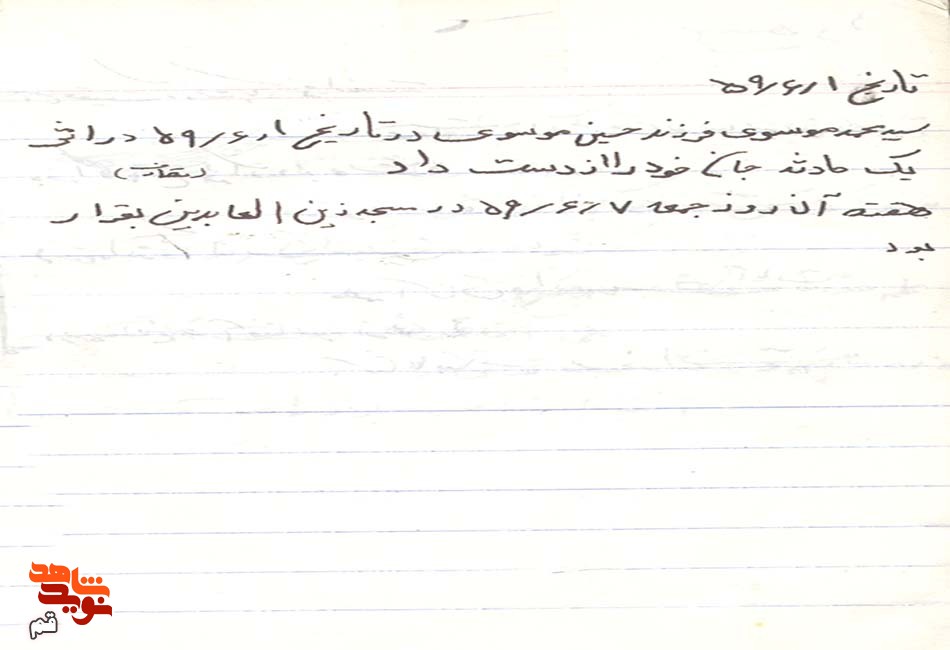 تاریخ ۵۹/۶/۱
سید محمد موسوی فرزند حسین موسوی در تاریخ ۵۹/۶/۱ در اثر
یک حادثه جان خود را از دست داد
هفته آن روز جمعه ۵۹/۶/۷ در مسجد زین العابدین بقرار
بود
نوید شاهد
قم